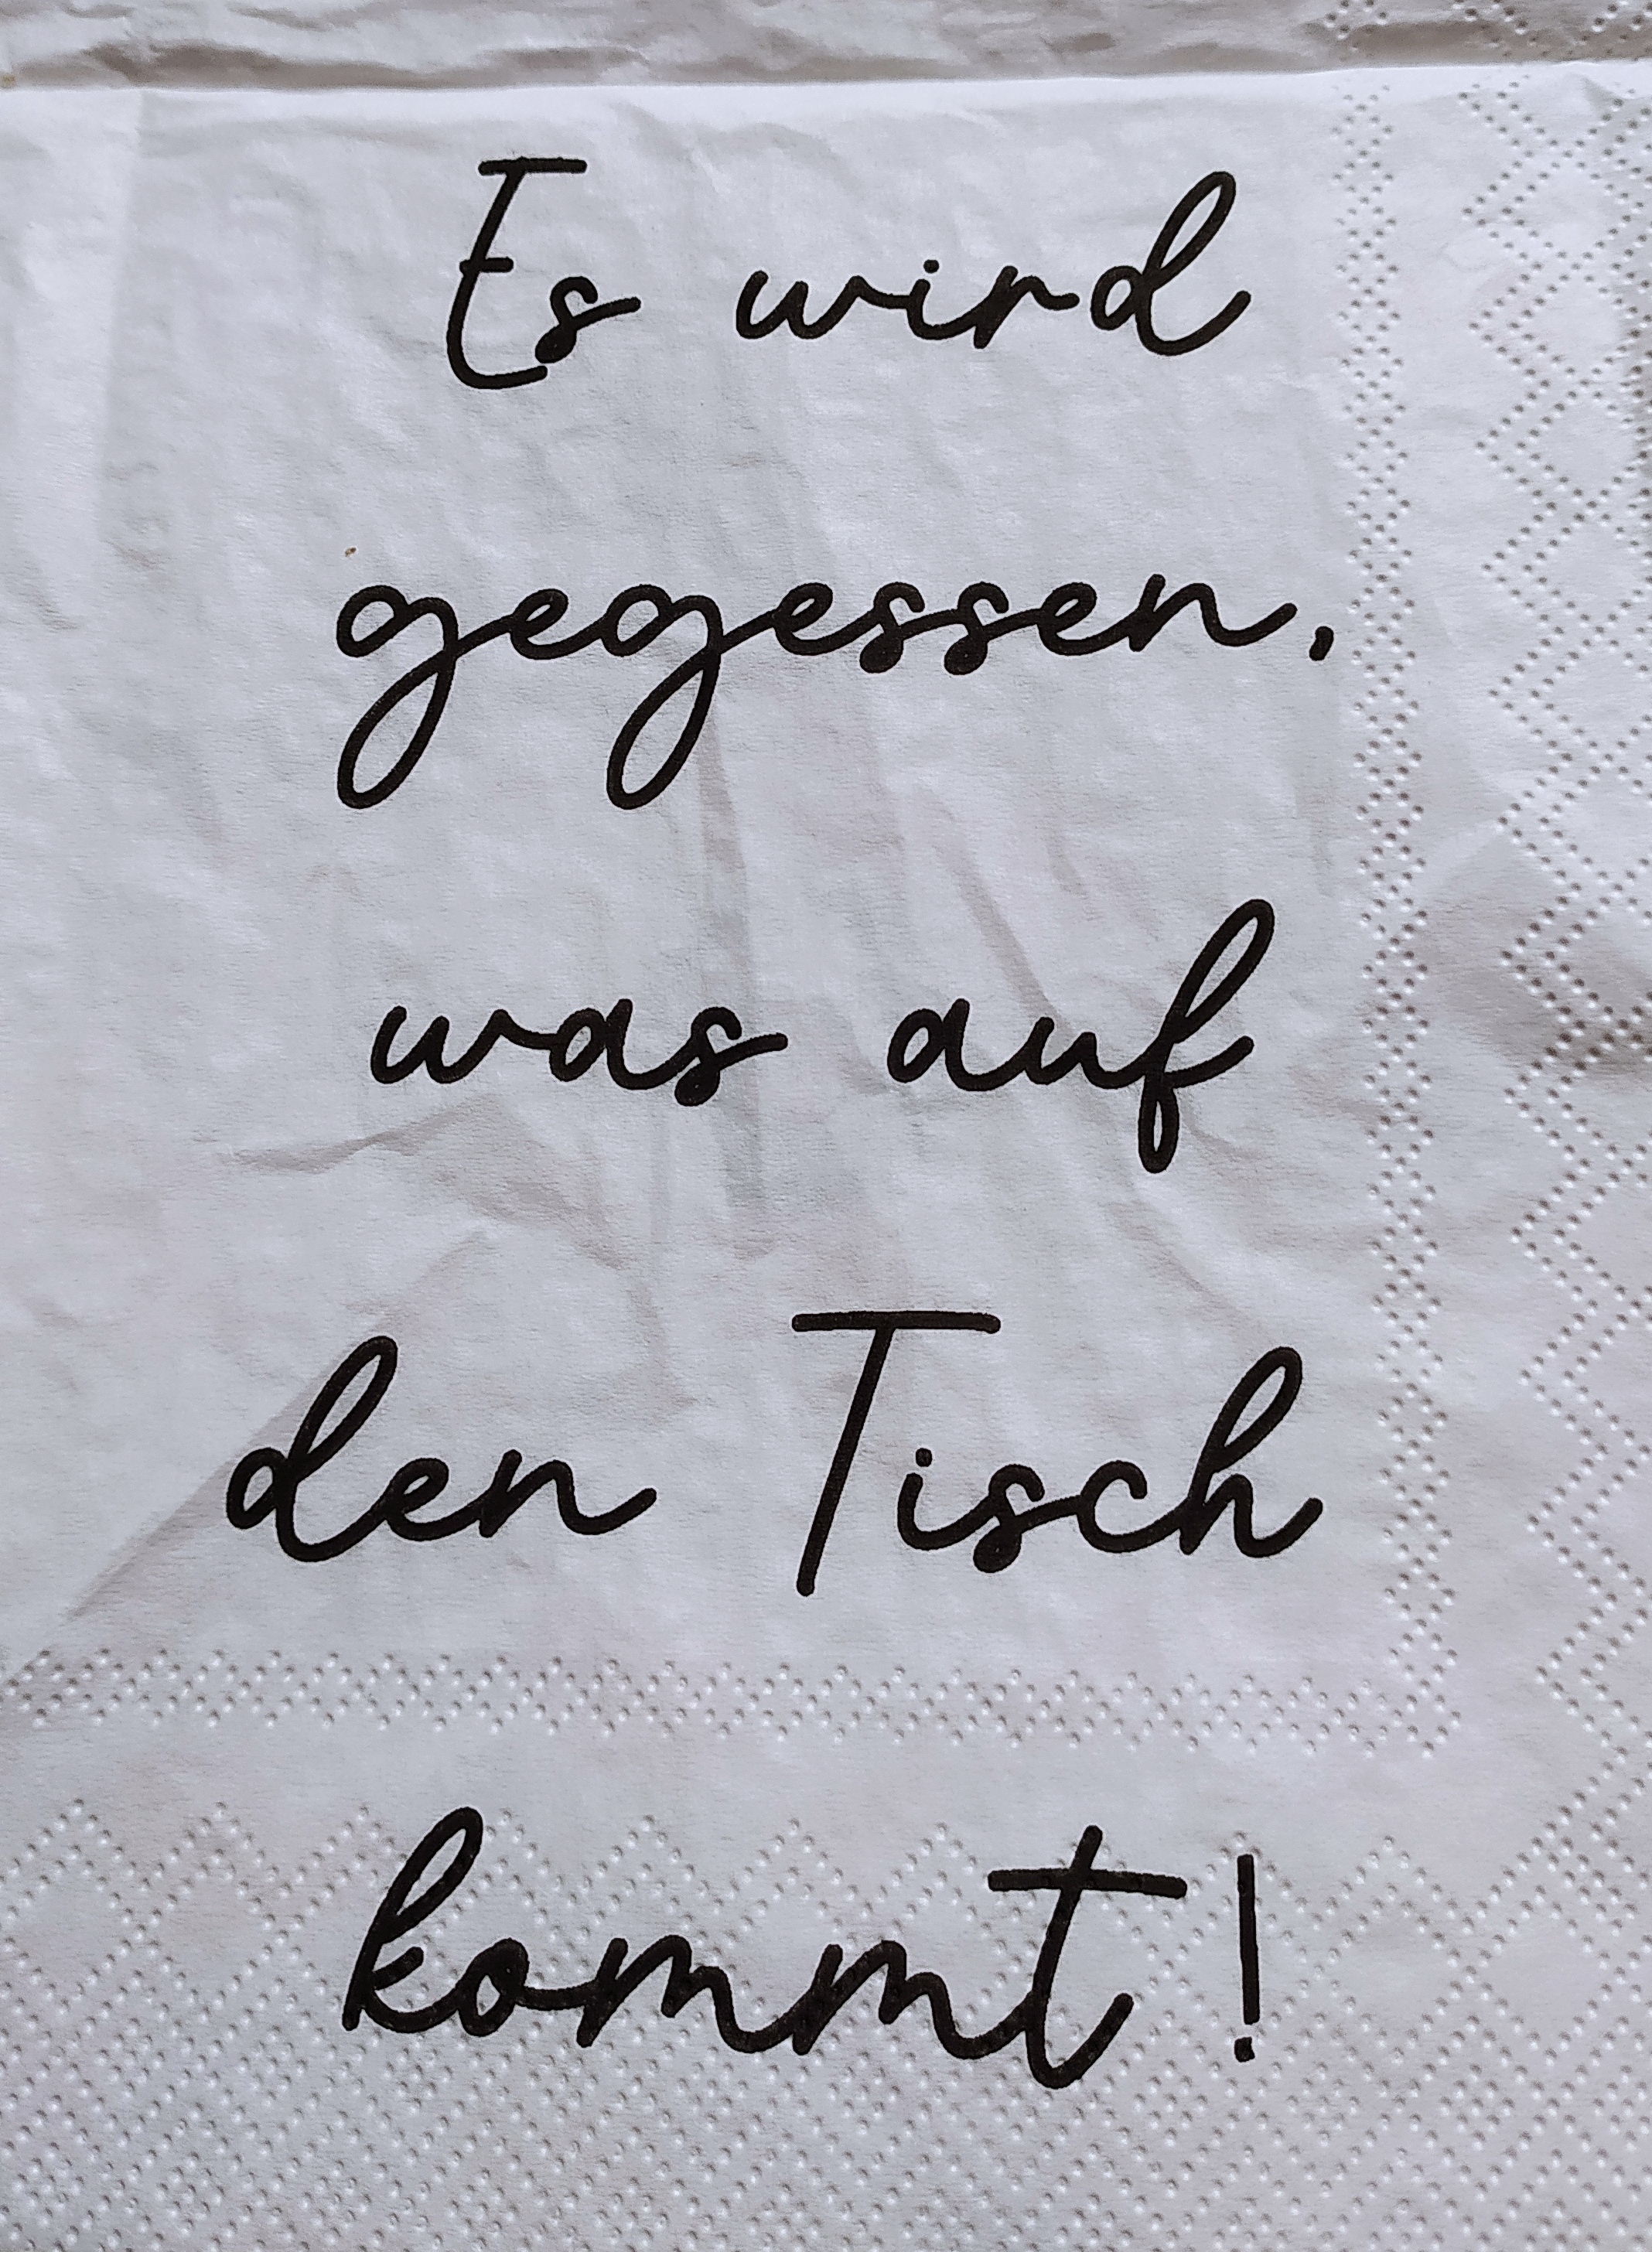 Es wird
gegessen,
was auf
den Tisch
kommt!